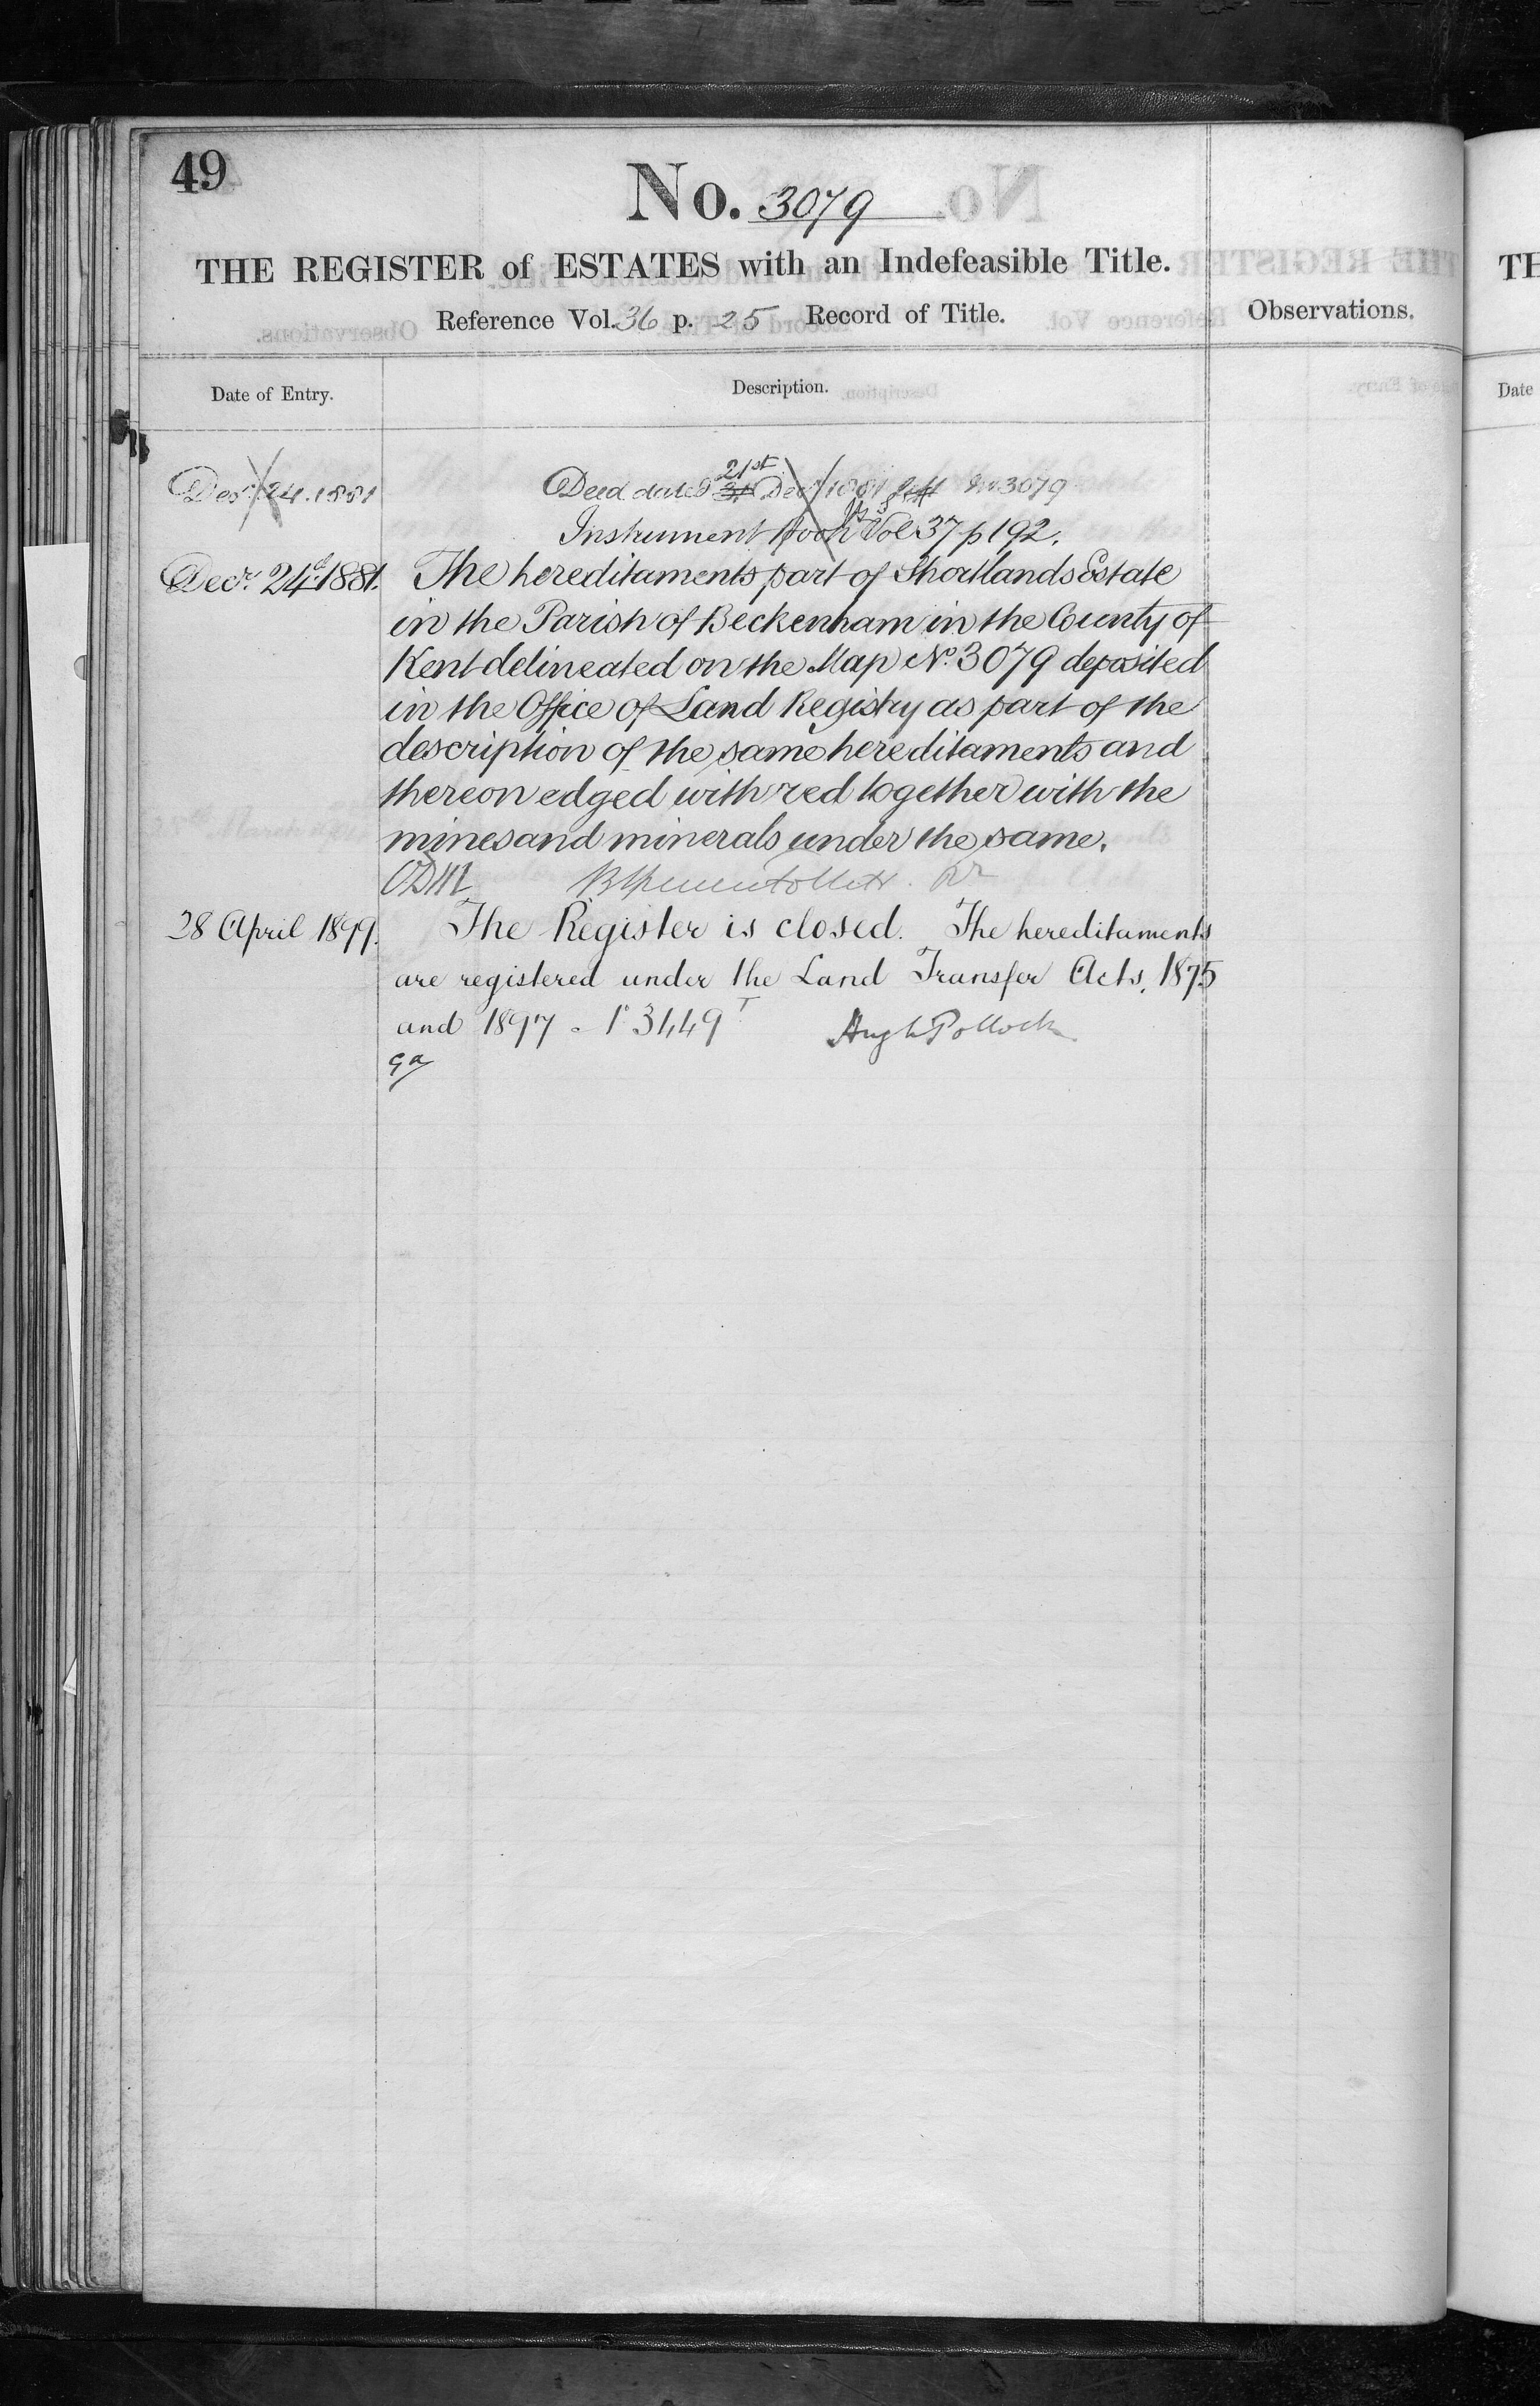 49
No. 3079
THE REGISTER of ESTATES with an Indefeasible Title.
Reference Vol. 36 p. 25 Record of Title.
Observations.
Date of Entry.
Description.
Decr. 24. 1881
Deed dated 21st Decr 1881 No 3079
Instrument Book Vol 37 p 192.
Decr. 24. 1881. The hereditaments part of Shortlands Estate
in the Parish of Beckenham in the County of
Kent delineated on the Map No. 3079 deposited
in the Office of Land Registry as part of the
description of the same hereditaments and
thereon edged with red together with the
mines and minerals under the same.
28 April 1899. The Register is closed. The hereditaments
are registered under the Land Transfer Acts, 1875
and 1897
Hugh Pollock
TH
Date